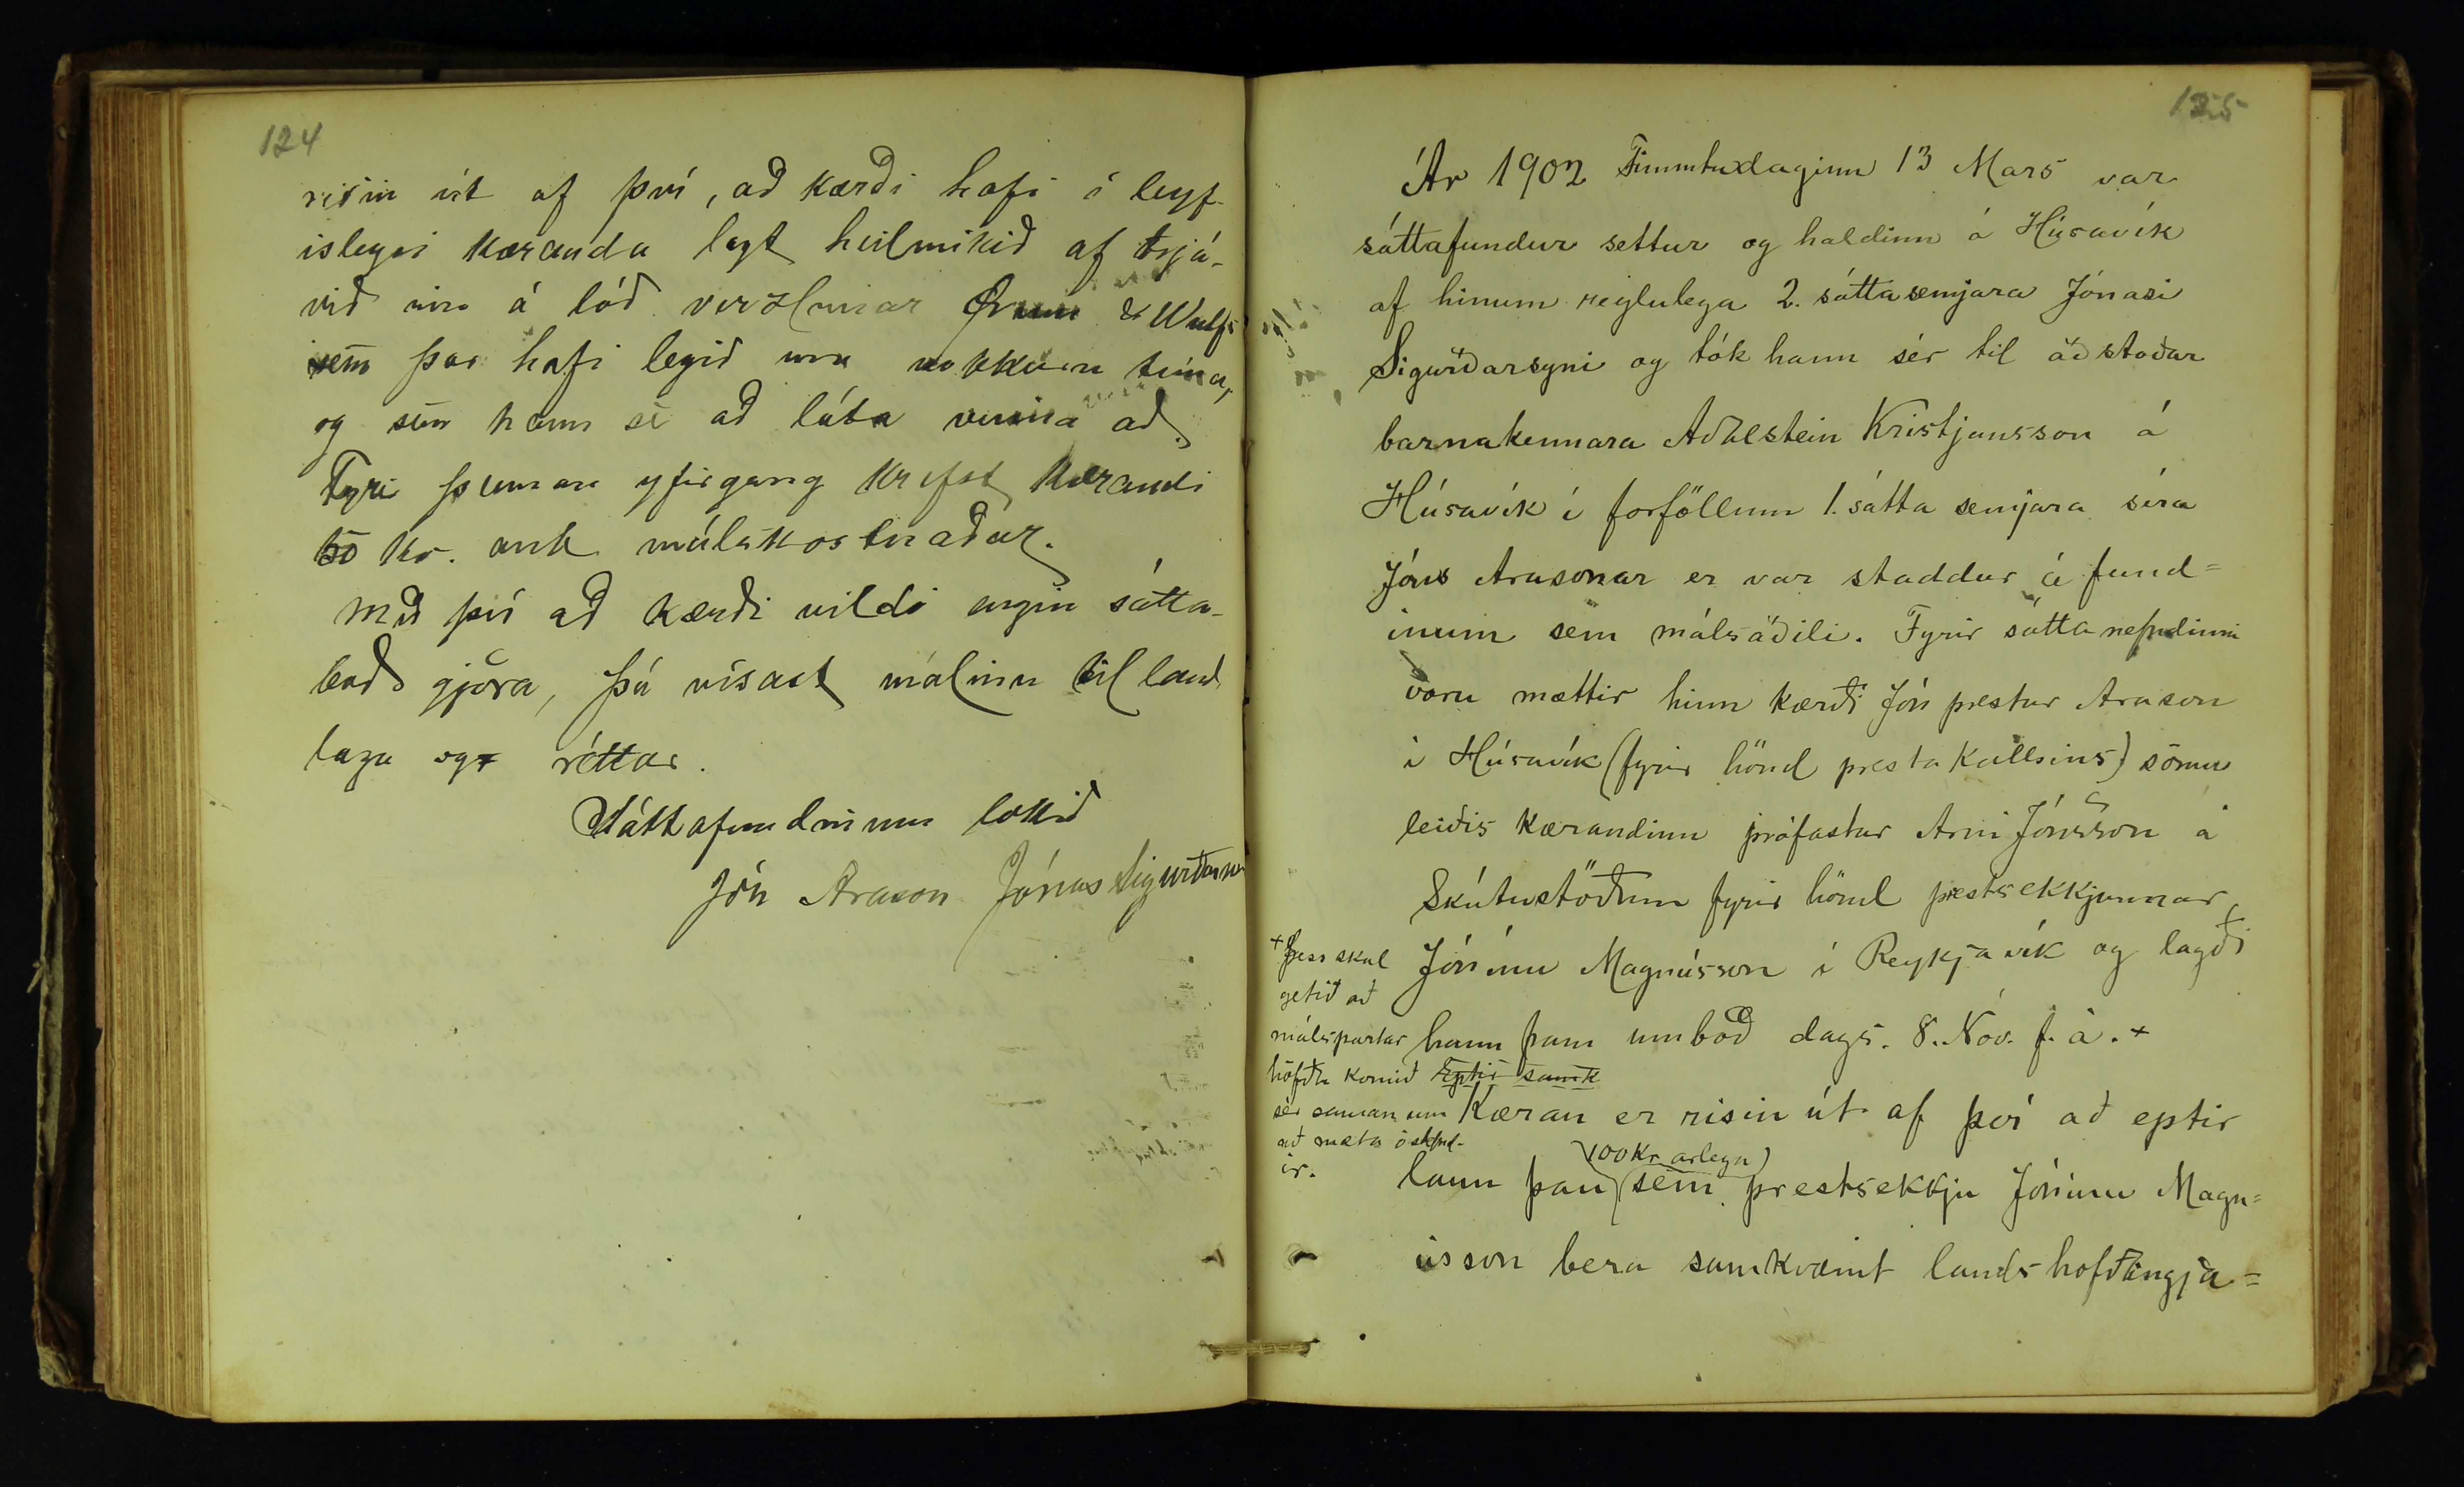 124
risin út af því, að kærði hafi í leyf-
isleysi kæranda lagt heilmikið af trjá-
við inn á lóð verzlunar Ørum & Wulfs
sem þar hafi legið um nokkurn tíma,
og sem hann sé að láta vinna að.
Fyrir þennan yfirgang krefst kærandi
50 kr. auk málskostnaðar.
Með því að kærði vildi engin sátta-
boð gjöra, þá vísast málinu til land
laga og réttar.
Sáttafundinum lokið
Jón Arason Jónas Sigurðsson
125
Ár 1902 Fimmtudaginn 13 Mars var
sáttafundur settur og haldinn á Húsavík
af hinum reglulega 2. sáttasemjara Jónasi
Sigurðarsyni og tók hann sér til aðstoðar
barnakennara Aðalstein Kristjansson á
Húsavík í forföllum 1. sátta semjara síra
Jóns Arasonar er var staddur á fund=
inum sem málsaðili. Fyrir sátta nefndinni
voru mættir hinn kærði Jón prestur Arason
á Húsavík (fyrir hönd presta kallsins) sömu
leiðis kærandinn prófastur Arni Jónsson á
Skútustöðum fyrir hönd prestsekkjunnar
Jónínu Magnússon í Reykjavík og lagði
hann fram umboð dags. 8. Nóv. f. á. +
+ Þess skal
getið að
málspartar
höfðu komið
sér saman um
að mæta óstefnd-
ir.
Eptir samk
Kæran er risin út af því að eptir
100 Kr arlega
laun þau sem prestsekkju Jónínu Magn=
ússon bera samkvæmt landshofðingja=